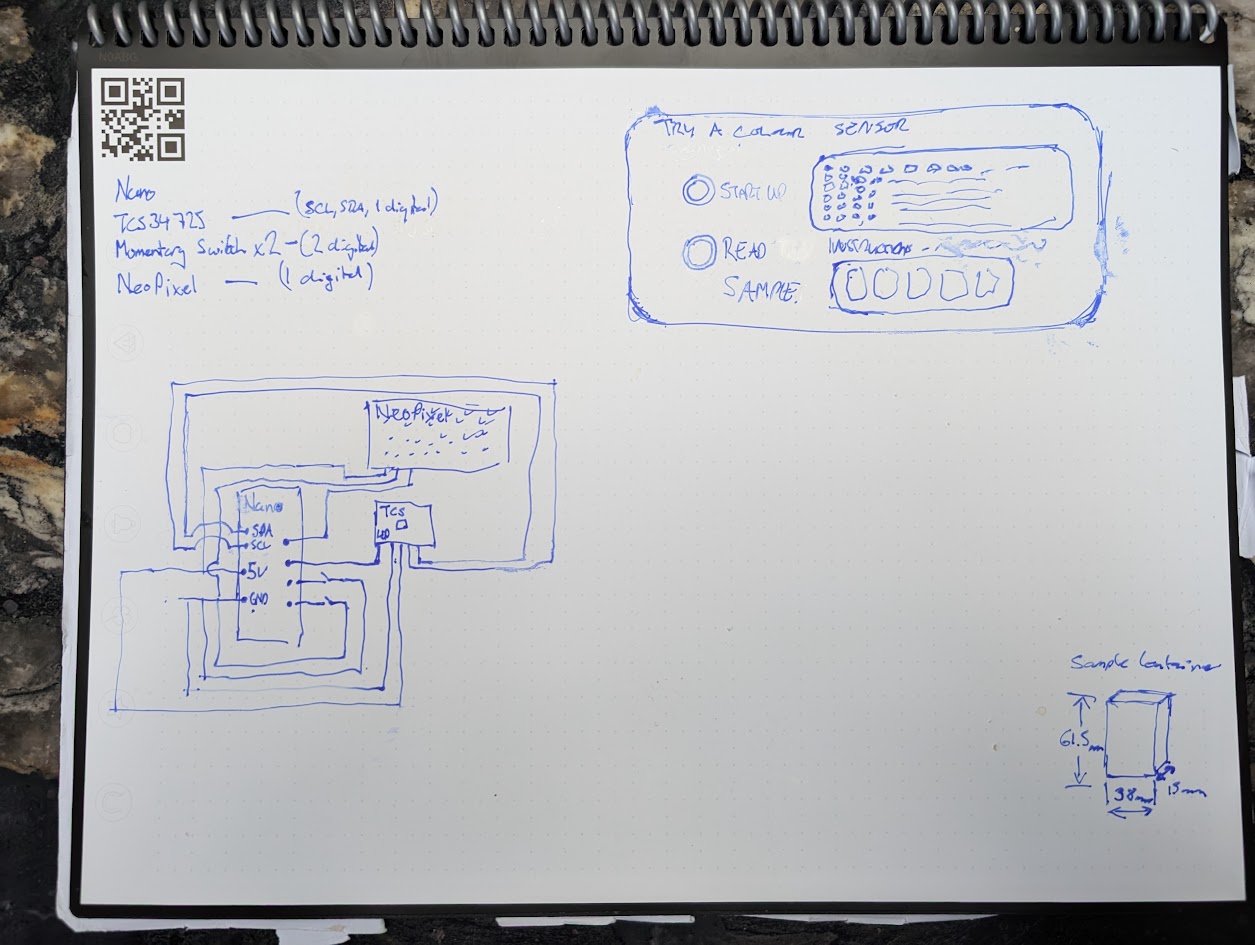 Nano
TCS34725 — (SCL, SDA, 1 digital)
Momentary Switch x2 - (2 digital)
NeoPixel — (1 digital)
TRY A COLOUR SENSOR
START UP
READ
SAMPLE
INSTRUCTIONS
NeoPixel
Nano
SDA
SCL
5V
GND
TCS
LED
Sample Container
61.5mm
38mm
15mm